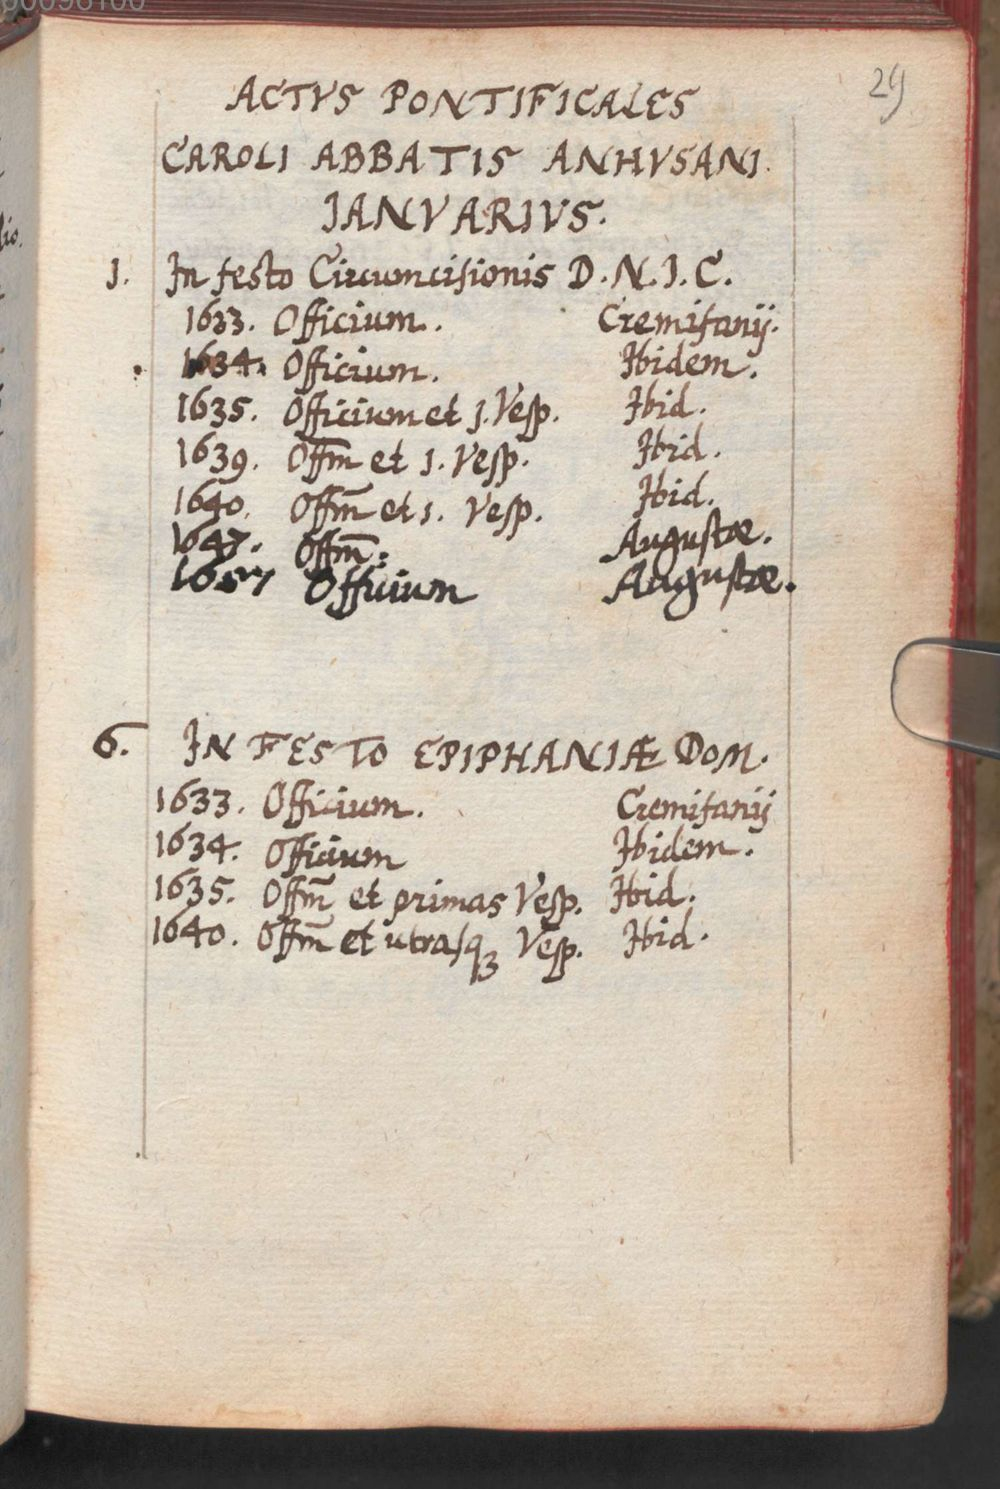 29
ACTVS PONTIFICALES
CAROLI ABBATIS ANHVSANI.
IANVARIVS.
1. In festo Circumcisionis D. N. I. C.
1633. Officium. Cremifanij.
1634. Officium. Ibidem.
1635. Officium et 1. Vesp. Ibid.
1639. Offm̄ et 1. Vesp. Ibid.
1640. Offm̄ et 1. Vesp. Ibid.
1647. Offm̄: Augustæ.
1657 Officium Augustæ.
6. IN FESTO EPIPHANIÆ DOM.
1633. Officium. Cremifanij
1634. Officium Ibidem.
1635. Offm̄ et primas Vesp. Ibid.
1640. Offm̄ et utrasqꝫ Vesp. Ibid.